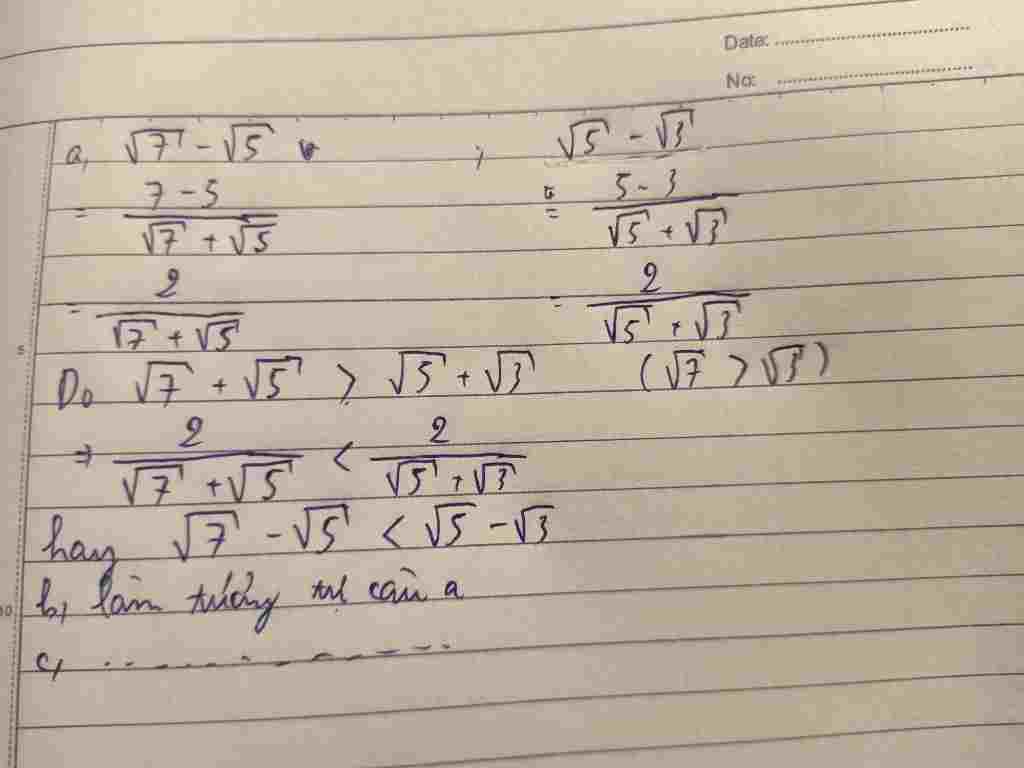 Date:
No:
a, √7 - √5 ; √5 - √3
= (7 - 5)/(√7 + √5) = (5 - 3)/(√5 + √3)
= 2/(√7 + √5) = 2/(√5 + √3)
5
Do √7 + √5 > √5 + √3 (√7 > √3)
⇒ 2/(√7 + √5) < 2/(√5 + √3)
hay √7 - √5 < √5 - √3
10
b, làm tương tự câu a
c,